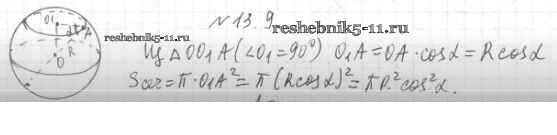 N 13.9
reshebnik5-11.ru
O₁
α
A
R
O
www.reshebnik5-11.ru
Из △OO₁A (∠O₁=90°) O₁A=OA·cosα=Rcosα
Sсеч=π·O₁A²=π(Rcosα)²=πR²cos²α.